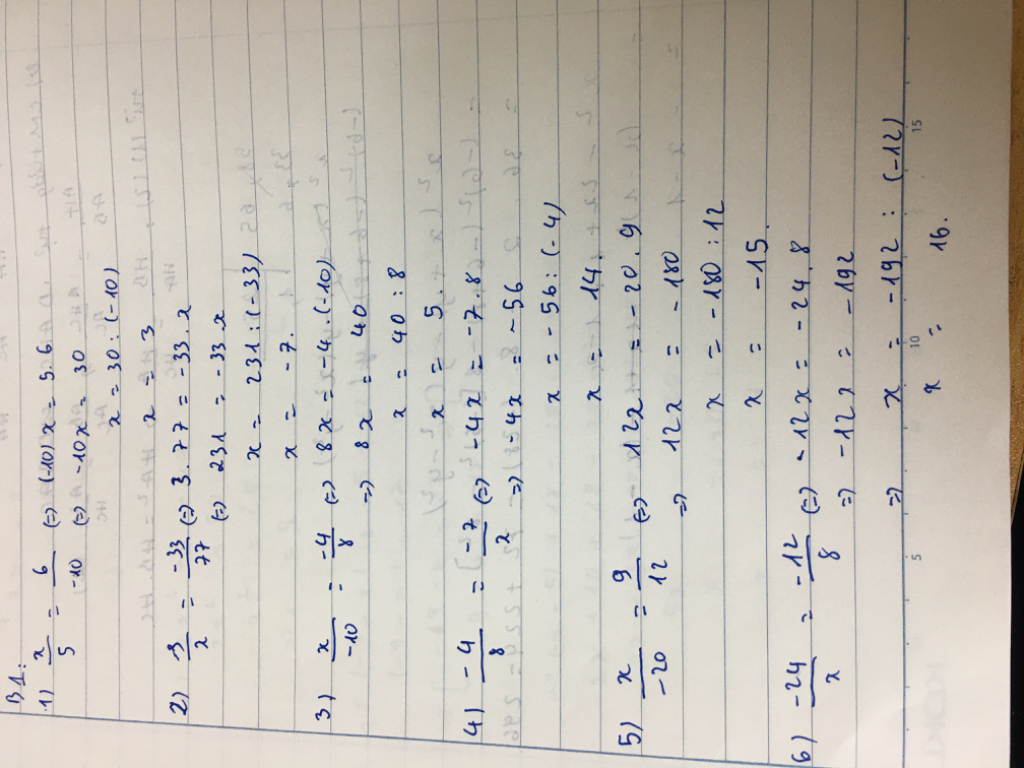 B1:
1) x/5 = 6/-10 (=) (-10)x = 5.6.
(=) -10x = 30
x = 30 : (-10)
x = -3
2) 3/x = -33/77 (=) 3.77 = -33.x
(=) 231 = -33.x
x = 231 : (-33)
x = -7.
3) x/-10 = -4/8 (=) 8x = -4.(-10)
=) 8x = 40
x = 40 : 8
x = 5.
4) -4/8 = -7/x (=) -4x = -7.8
=) -4x = -56
x = -56 : (-4)
x = 14.
5) x/-20 = 9/12 (=) 12x = -20.9
=) 12x = -180
x = -180 : 12
x = -15.
6) -24/x = -12/8 (=) -12x = -24.8
=) -12x = -192
=) x = -192 : (-12)
x = 16.
5 10 15